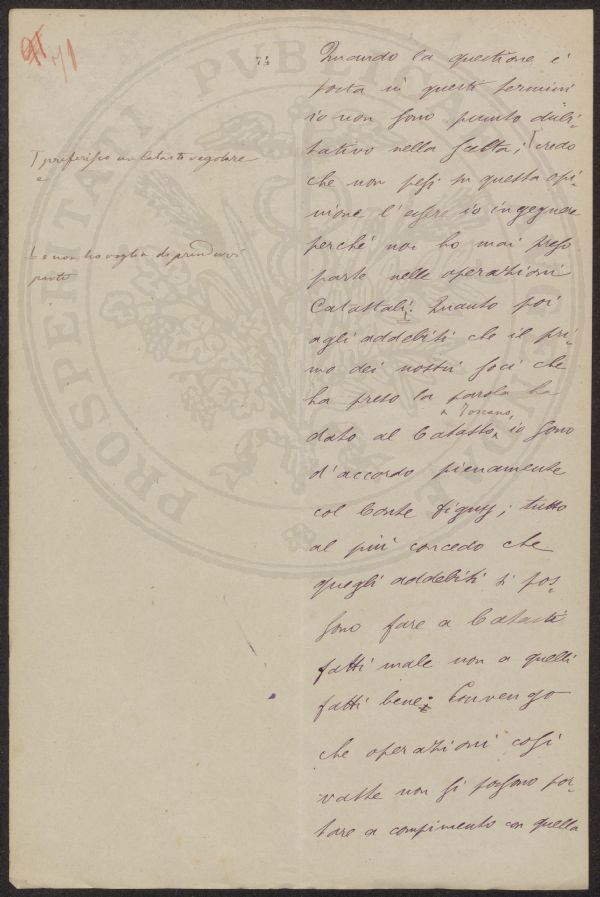 91 71
74
PROSPERITATI PUBLICAE
Quando la questione è
posta in questi termini
io non sono punto dubi-
tativo nella scelta; credo
che non pesi su questa opi-
nione l'essere io ingegnere
perché non ho mai preso
parte nelle operazioni
Catastali. Quanto poi
agli addebiti che il pri-
mo dei nostri soci che
ha preso la parola ha
Toscano,
dato al Catasto io sono
d'accordo pienamente
col Conte; tutto
al più concedo che
quegli addebiti si pos-
sono fare a Catasti
fatti male non a quelli
fatti bene; Convengo
che operazioni così
vaste non si possono por-
tare a compimento con quella
preferisco un Catasto regolare
e
e non ho voglia di prendervi
parte